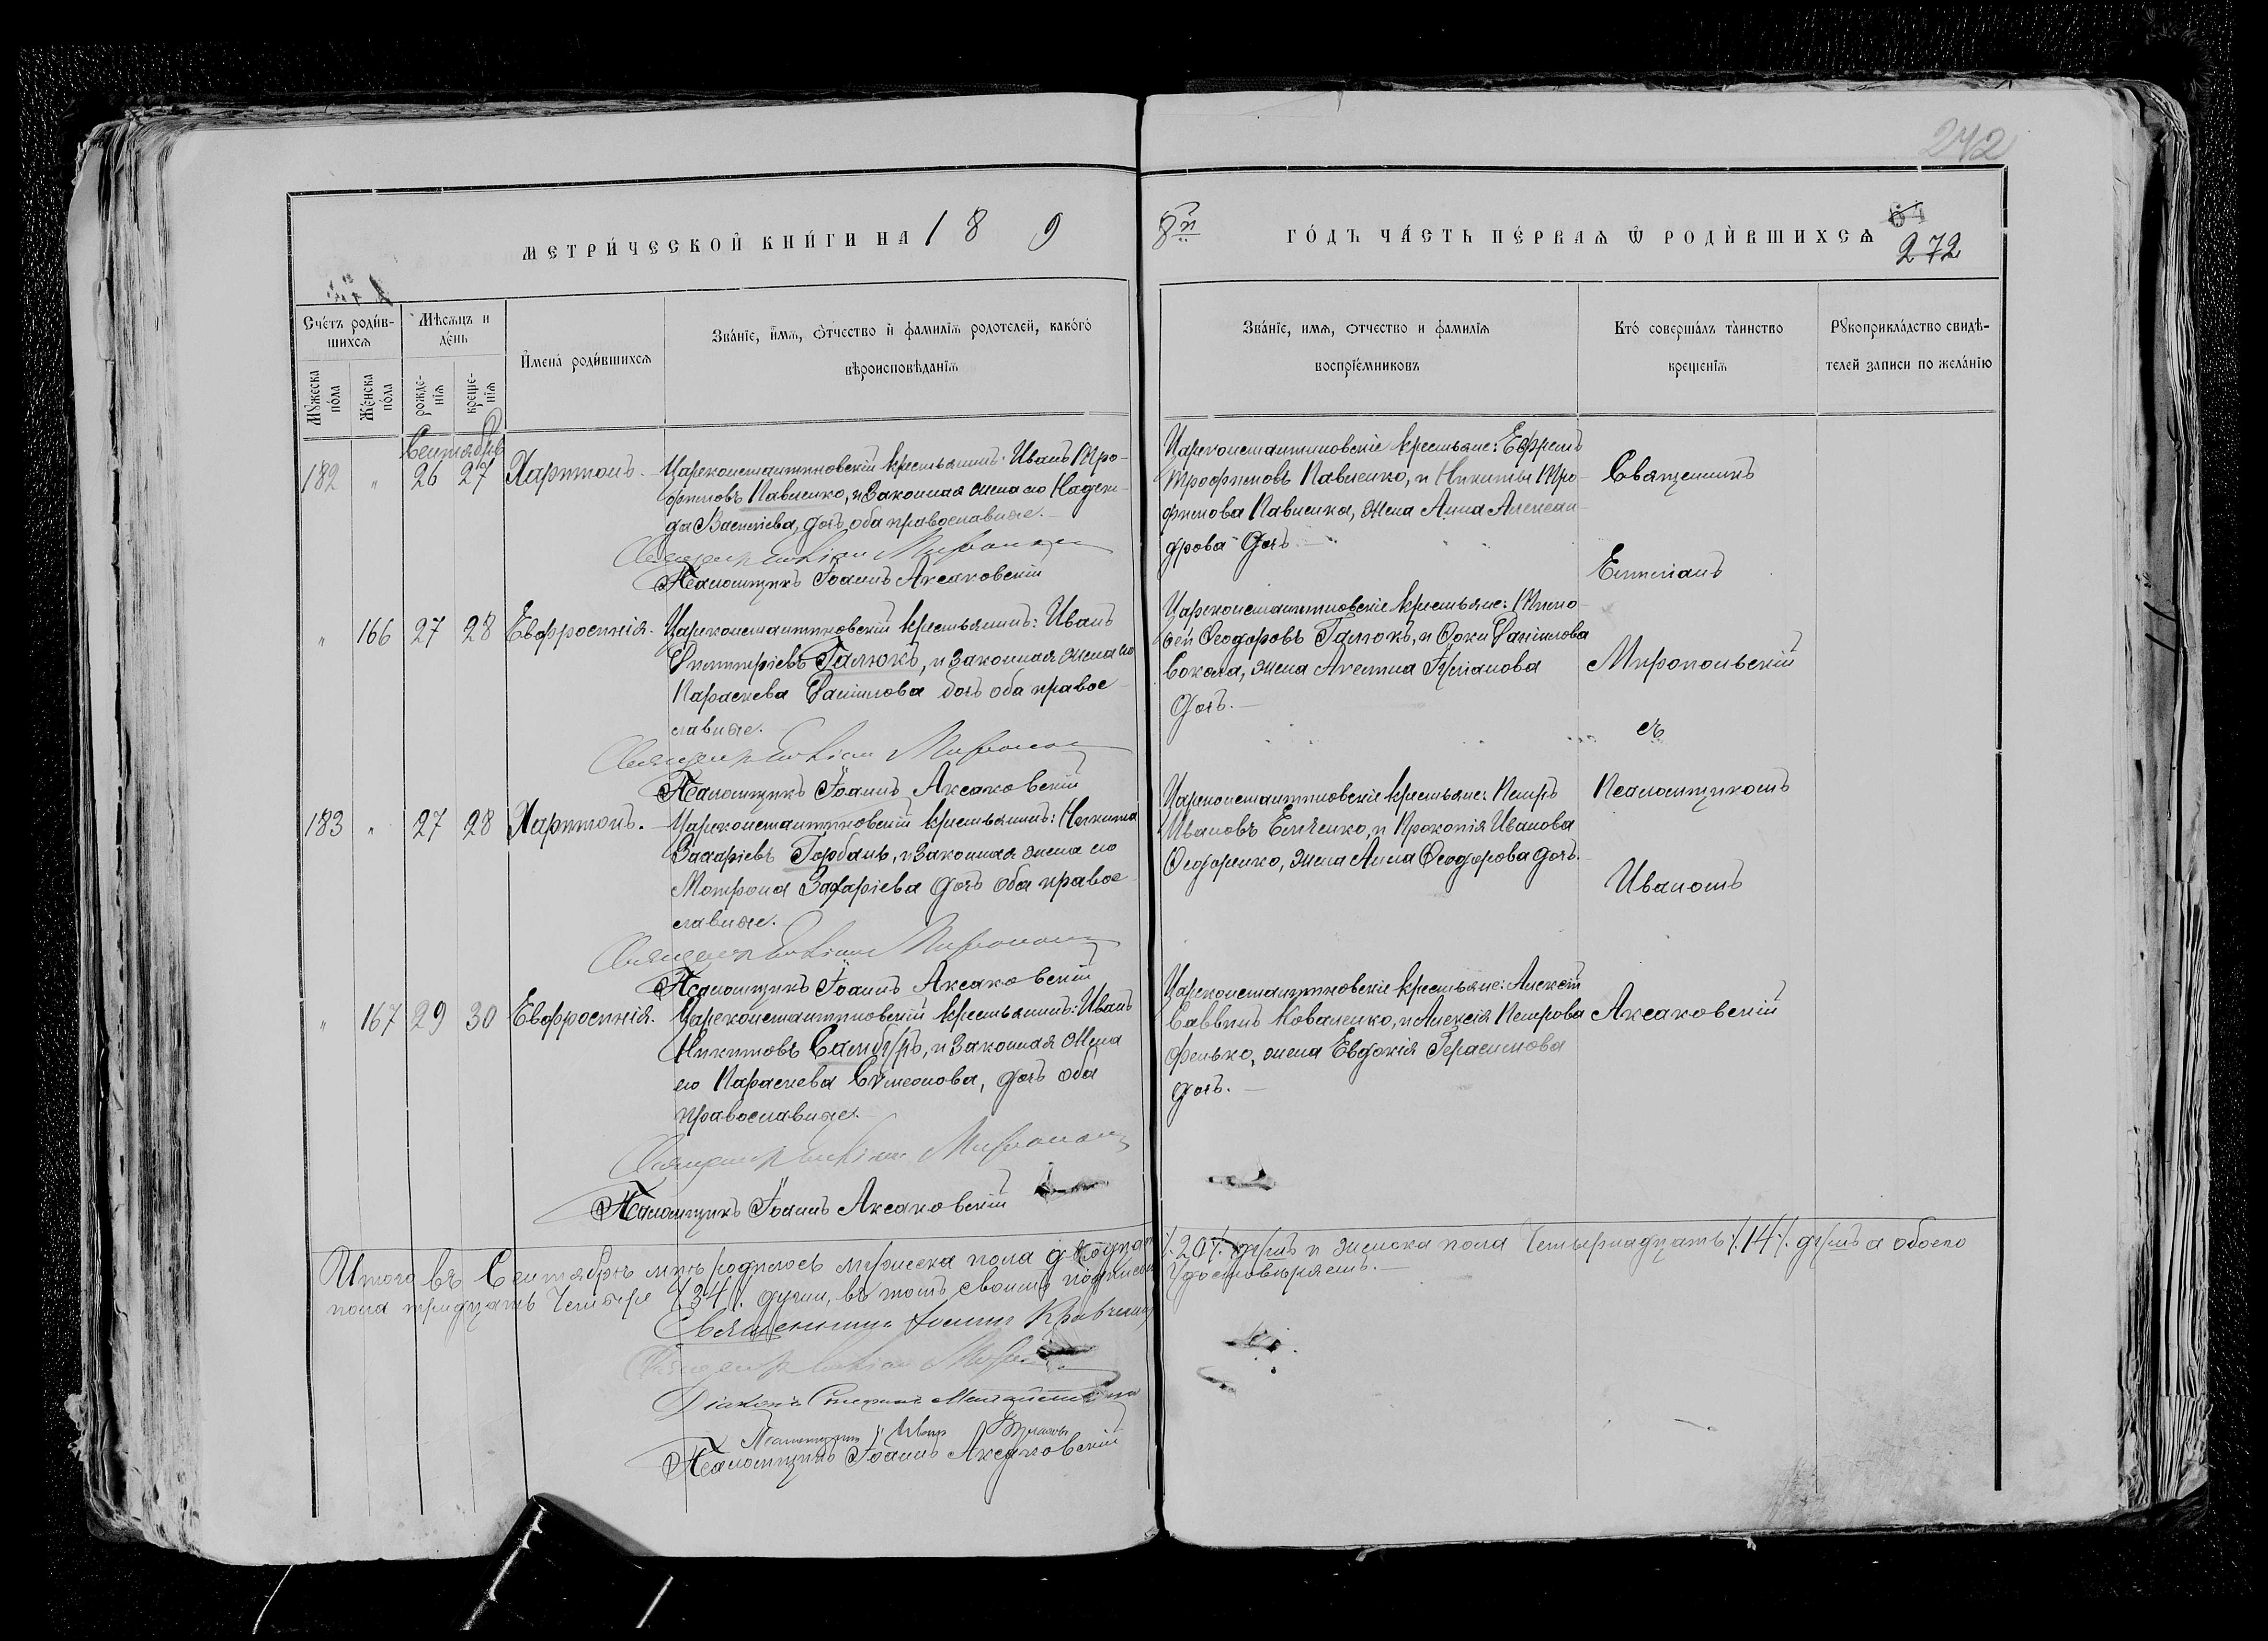 242
МЕТРИ́ЧЕСКОЙ КНИ́ГИ НА 1 8 9
8й ГО́ДЪ ЧА́СТЬ ПЕ́РВАѦ Ѿ РОДИ́ВШИХСѦ
64
272
Сче́тъ роди́в-
шихсѧ
Мꙋжеска по́ла
Же́нска по́ла
Мѣсѧцъ и
де́нь
рожде-
нїѧ
креще-
нїѧ
Имена̀ роди́вшихсѧ
Зва́нїе, и́мѧ, ѻ҆́тчество и фамилїѧ родотелей, како́гѡ
вѣроисповѣданїѧ
Зва́нїе, имѧ, ѻтчество и фамилїѧ
воспрїе́мниковъ
Кто̀ соверша́лъ та̀инство
крещенїѧ
Рꙋкоприкла́дство свидѣ-
телей записи по жела́нїю
Сентябрь
182 " 26 27 Харитонъ. Цареконстантиновскій крестьянинъ: Иванъ Тро-
фимовъ Павленко, и законная жена его Надеж-
да Васильева, дочь оба православные.
Псаломщикъ Іоаннъ Аксаковскій
Цареконстантиновскіе крестьяне: Ефремъ
Трофимовъ Павленко, и Никиты Тро-
фимова Павленка, жена Анна Алексан-
дрова дочь.
Священникъ
Емиліанъ
" 166 27 28 Евфросинія. Цареконстантиновскій крестьянинъ: Иванъ
Димитріевъ Галюкъ, и законная жена его
Параскева Даніилова дочь оба право-
славные.
Псаломщикъ Іоаннъ Аксаковскій
Цареконстантиновскіе крестьяне: Тимо-
фей Ѳеодоровъ Галюкъ, и Ѳоки Даніилова
Сокола, жена Акилина
дочь.
Миропольскій
съ
183 " 27 28 Харитонъ. Цареконстантиновскій крестьянинъ: Никита
Захаріевъ Горбань, и законная жена его
Матрона Захаріева дочь оба право-
славные.
Псаломщикъ Іоаннъ Аксаковскій
Цареконстантиновскіе крестьяне: Петръ
Ивановъ и Прокопія Иванова
Ѳедоренко, жена Анна Ѳеодорова дочь.
Псаломщикомъ
Иваномъ
" 167 29 30 Евфросинія. Цареконстантиновскій крестьянинъ: Иванъ
Никитовъ Самбуръ, и законная жена
его Параскева Сѵмеонова, дочь оба
православные.
Псаломщикъ Іоаннъ Аксаковскій
Цареконстантиновскіе крестьяне: Алексій
Саввинъ Коваленко, и Алексія Петрова
Фенько, жена Евдокія Герасимова
дочь.
Аксаковскій
Итого въ Сентябрѣ м-цѣ родилось мужеска пола двадцать /.20/. душъ и женска пола Четырнадцать /.14/. душъ а обоего
пола тридцать Четыре /.34/. души, въ томъ своимъ подписомъ Удостовѣряемъ.
Священникъ Іоаннъ
Діаконъ Стефанъ
Псаломщикъ
Псаломщикъ Іоаннъ Аксаковскій